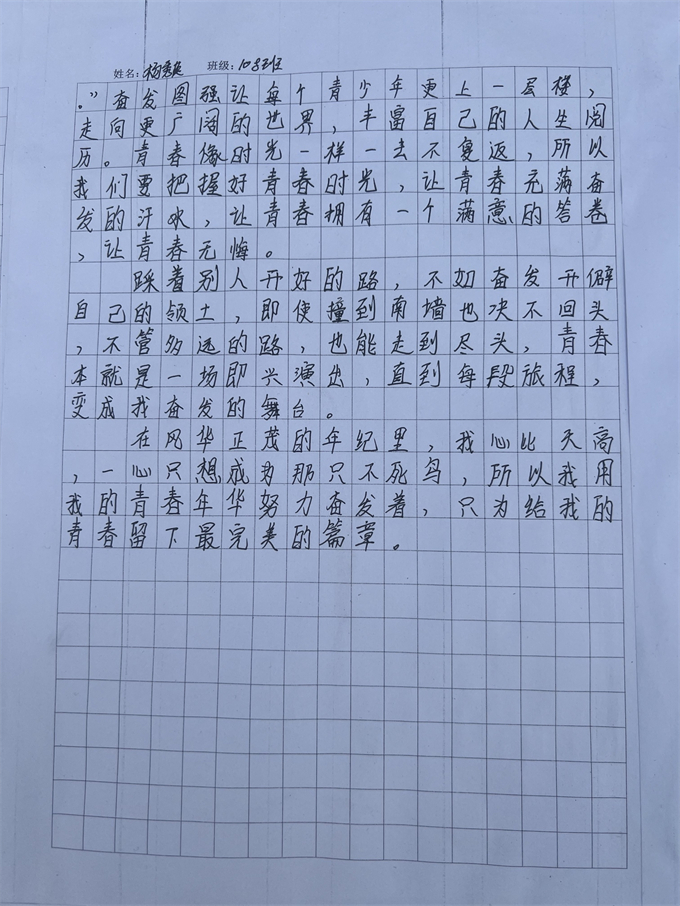 姓名：杨 班级：108班
。”奋发图强让每个青少年更上一层楼，
走向更广阔的世界，丰富自己的人生阅
历。青春像时光一样一去不复返，所以
我们要把握好青春时光，让青春充满奋
发的汗水，让青春拥有一个满意的答卷
，让青春无悔。
踩着别人开好的路，不如奋发开僻
自己的领土，即使撞到南墙也决不回头
，不管多远的路，也能走到尽头，青春
本就是一场即兴演出，直到每段旅程，
变成我奋发的舞台。
在风华正茂的年纪里，我心比天高
，一心只想成为那只不死鸟，所以我用
我的青春年华努力奋发着，只为给我的
青春留下最完美的篇章。